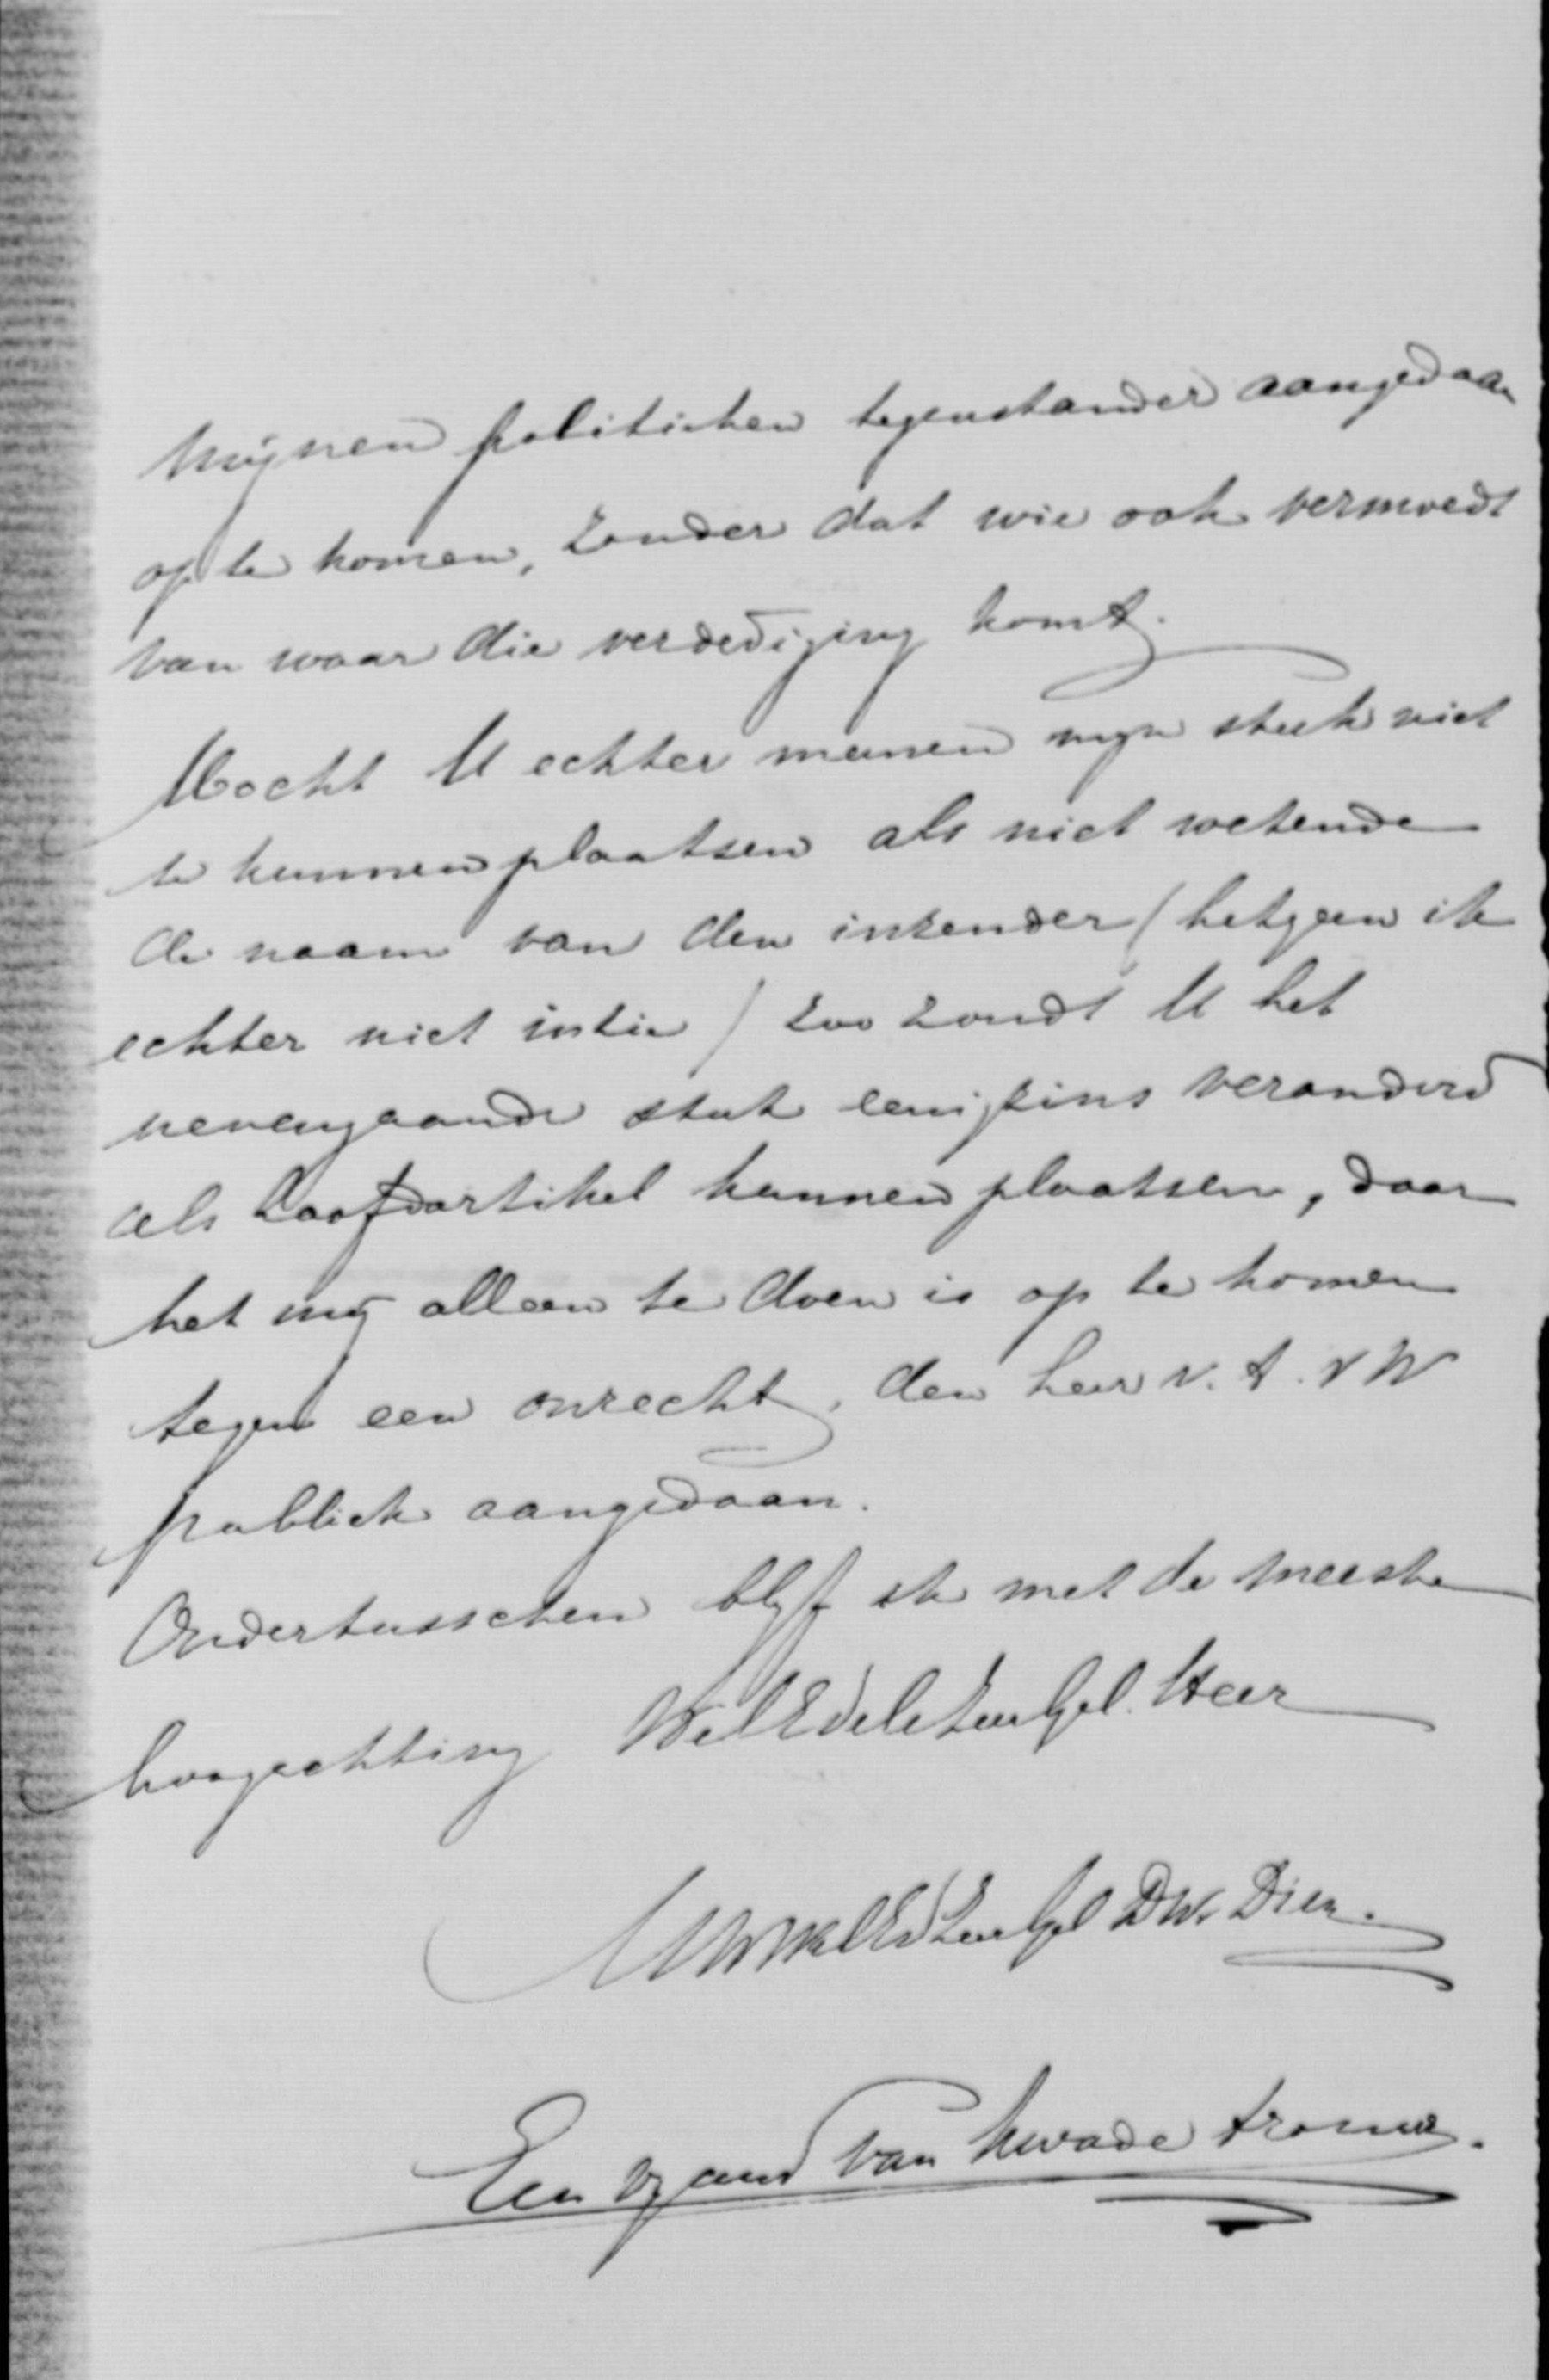 mijnen politieken tegenstander aangedaan
op te komen, zonder dat wie ook vermoedt
van waar die verdediging komt.
Mocht U echter meenen mijn stuk niet
te kunnen plaatsen als niet wetende
de naam van den inzender (hetgeen ik
echter niet inzie) zoo zoudt U het
nevengaande stuk eenigzins veranderd
als hoofdartikel kunnen plaatsen, daar
het mij alleen te doen is op te komen
tegen een onrecht, den heer v. A. v W
publiek aangedaan.
Ondertusschen blijf ik met de meeste
hoogachting WelEdelZeerGel. Heer
UWWelEdZeerGel DW. Dien.
Een vijand van kwade trouw.